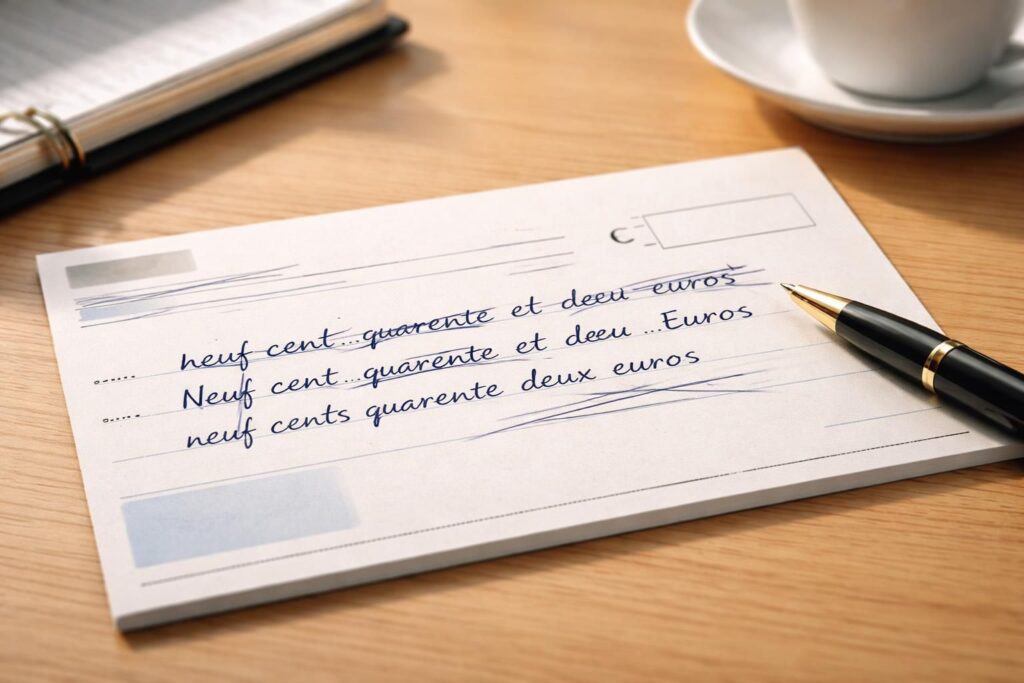 neuf cent...quarente et deeu euros
Neuf cent...quarente et deeu ...Euros
neuf cents quarente deux euros